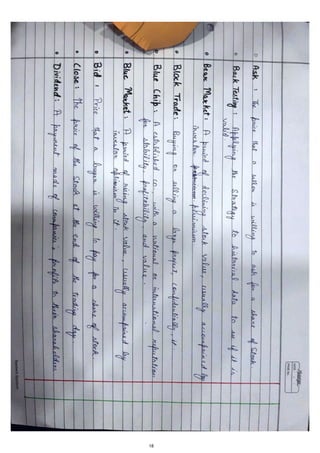 Ask : The price that a seller is willing to ask for a share of stock.
Back Testing : Applying the strategy to historical data to see if it is
valid
Bear Market : A period of declining stock value, usually accompanied by
investor pessimism.
Block Trade : Buying or selling a large project, confidentially it.
Blue Chip : A established co. with a national or international reputation
for stability, profitability and value.
Blue Market : A period of rising stock value, usually accompanied by
investor optimism in it.
Bid : Price that a buyer is willing to pay for a share of stock.
Close : The price of the stock at the end of the trading day.
Dividend : A payment made of companies profits to their shareholders
18